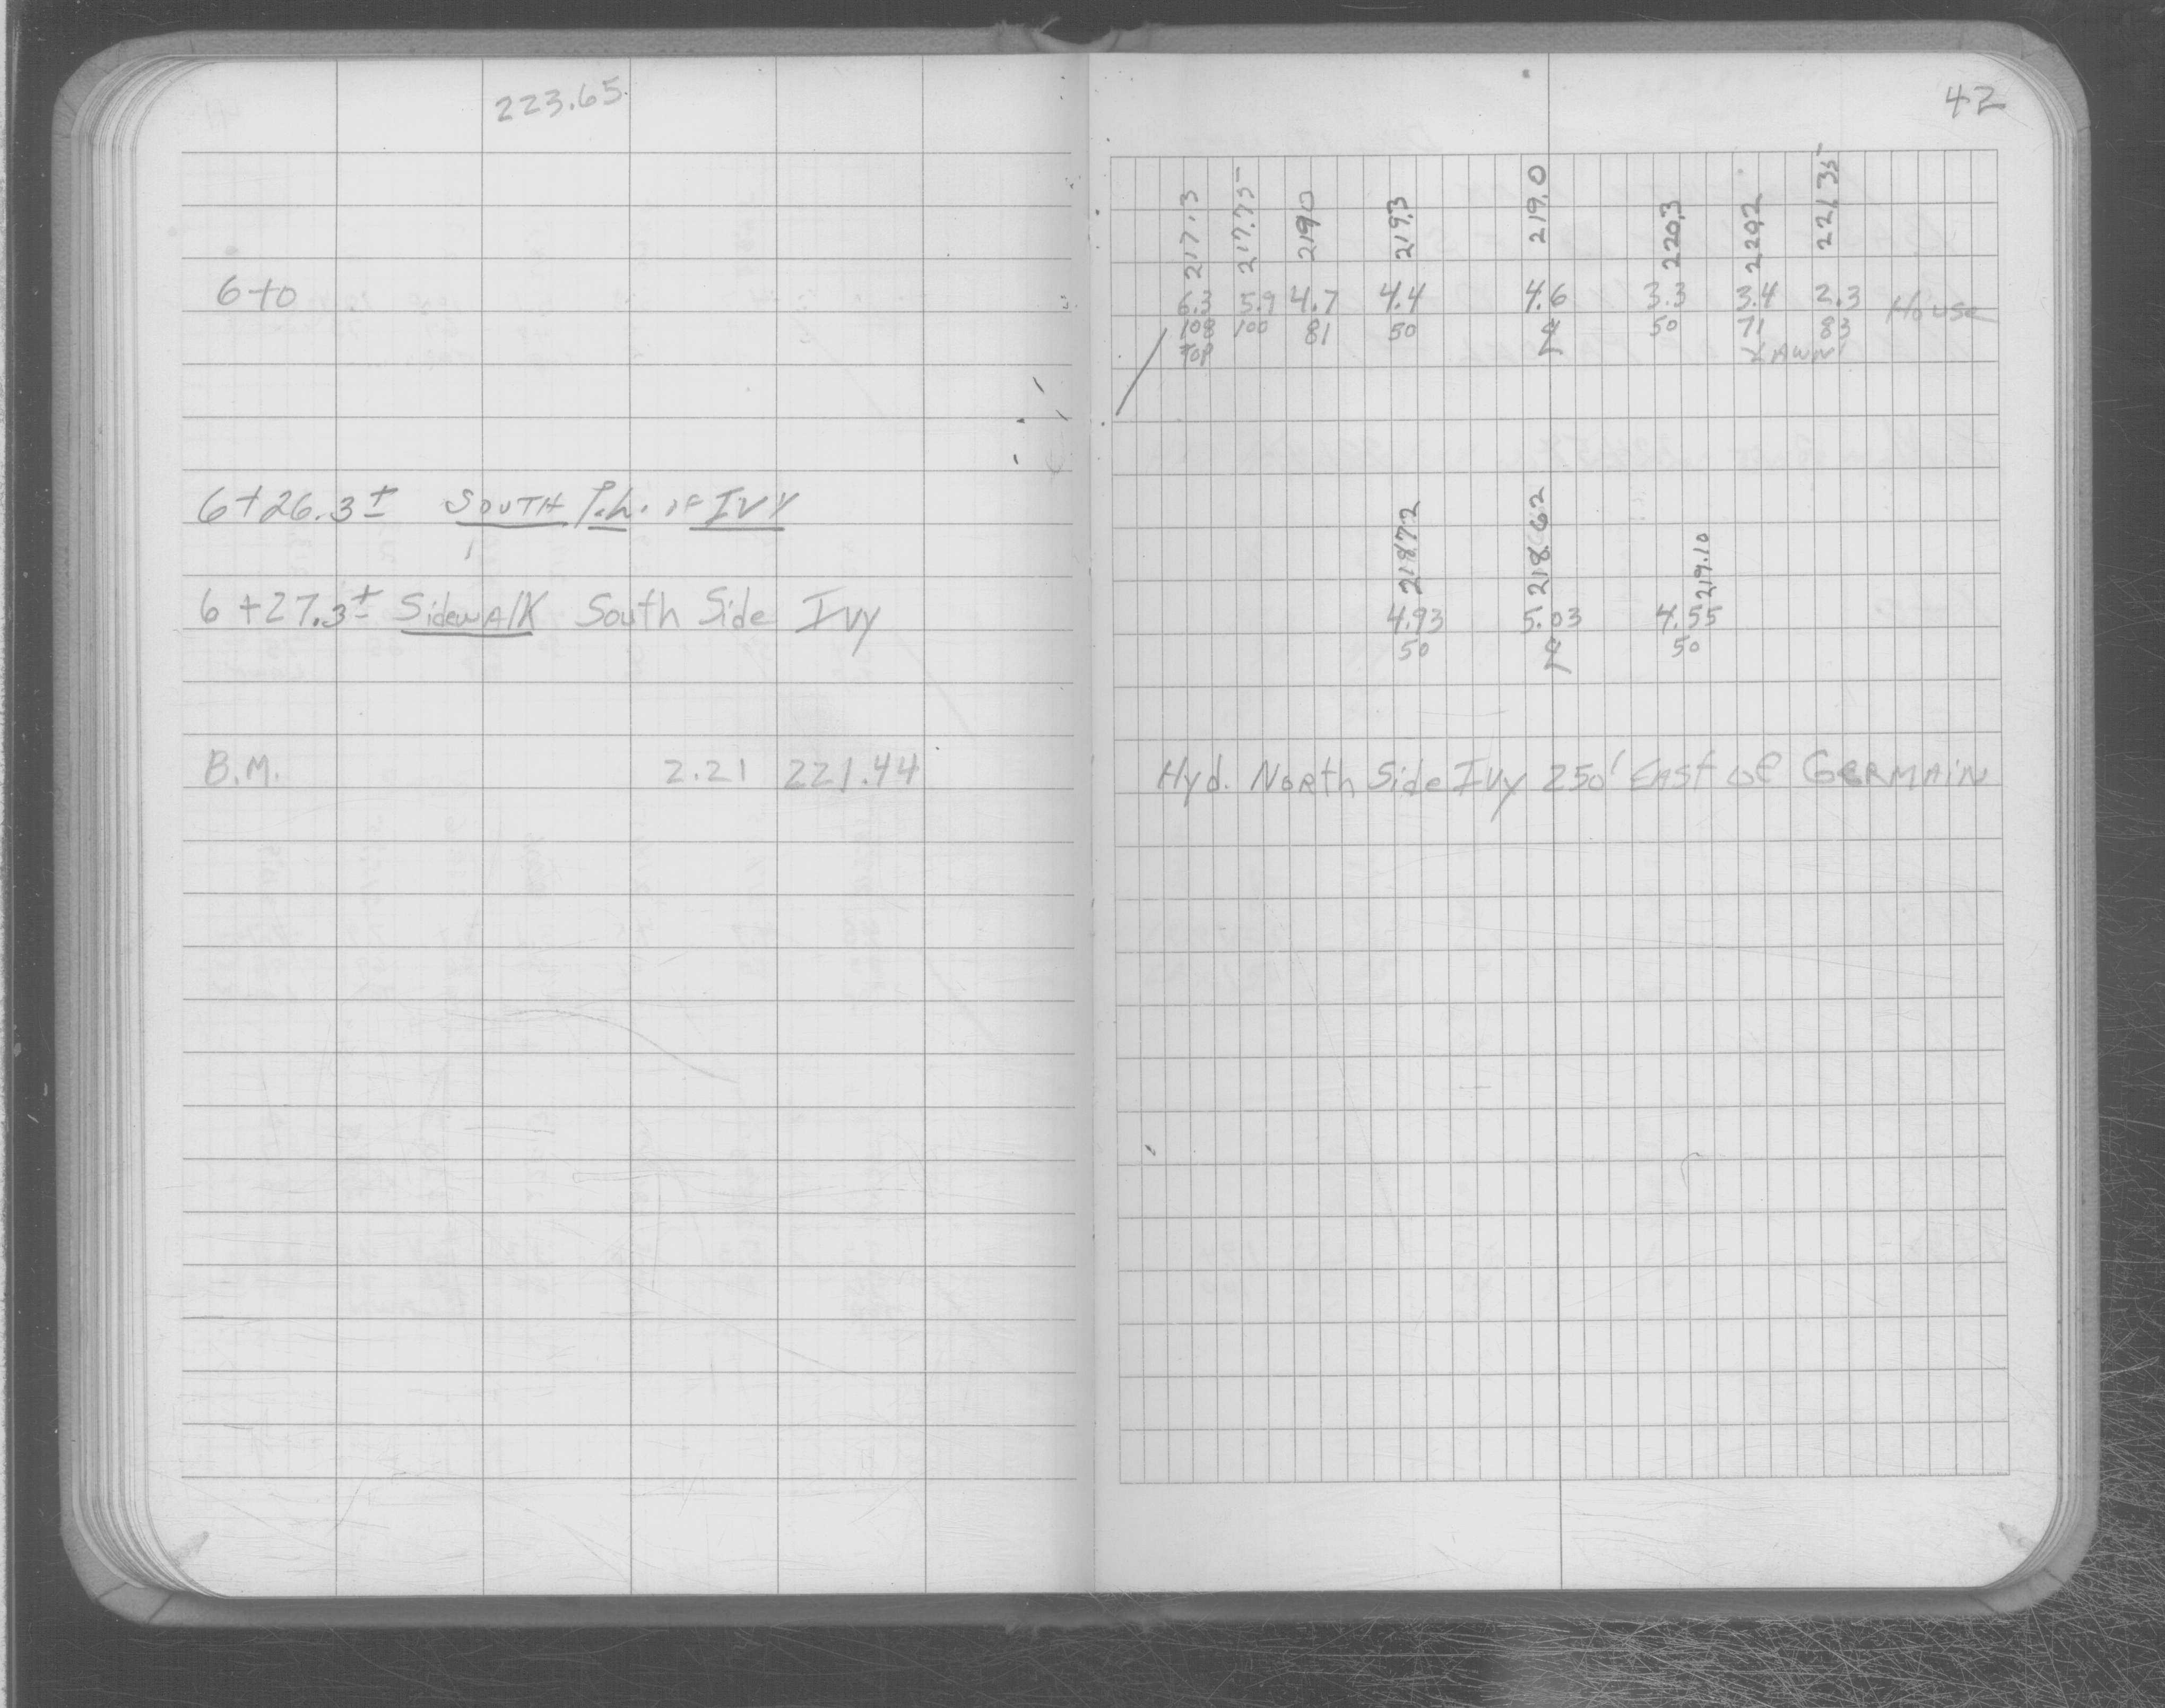 223.65
6+0
6+26.3± SOUTH P.L. OF IVY
6+27.3± Sidewalk South Side Ivy
B.M. 2.21 221.44
42
217.3 217.75 219.0 219.3 219.0 220.3 220.2 221.35
6.3 5.9 4.7 4.4 4.6 3.3 3.4 2.3 House
108 100 81 50 ℄ 50 71 83
TOP LAWN
218.72 218.62 219.10
4.93 5.03 4.55
50 ℄ 50
Hyd. North Side Ivy 250' EAST OF GERMAIN